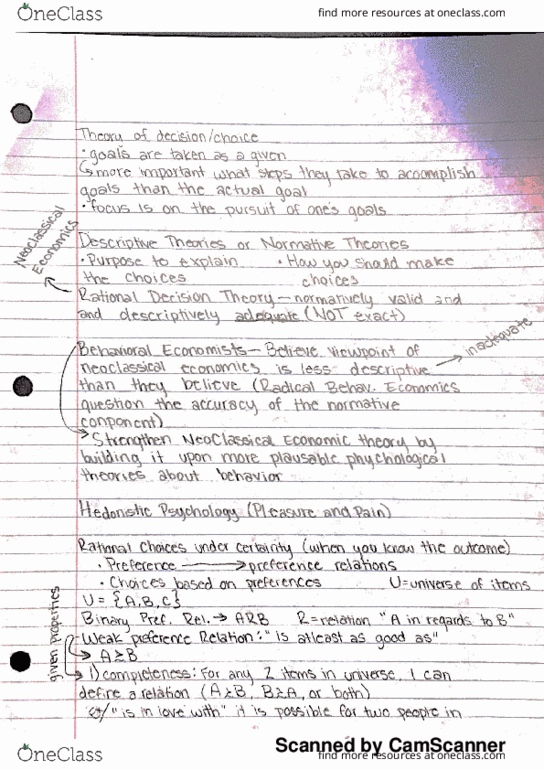 OneClass
find more resources at oneclass.com
Theory of decision/choice
• goals are taken as a given
↳ more important what steps they take to accomplish
goals than the actual goal
• focus is on the pursuit of one's goals
Neoclassical
Economics
Descriptive Theories or Normative Theories
• Purpose to explain • How you should make
the choices choices
Rational Decision Theory — normatively valid and
and descriptively adequate (NOT exact)
Behavioral Economists — Believe viewpoint of
neoclassical economics is less descriptive → inadequate
than they believe (Radical Behav. Economics
question the accuracy of the normative
conponent)
→ Strengthen NeoClassical Economic theory by
building it upon more plausable phychological
theories about behavior
Hedonistic Psychology (Pleasure and Pain)
Rational Choices under certainty (when you know the outcome)
• Preference → preference relations
• Choices based on preferences U=universe of items
U = {A,B,C}
Binary Pref. Rel. → ARB R=relation "A in regards to B"
given properties
Weak preference Relation: "is atleast as good as"
→ A≥B
→ 1) completeness: For any 2 items in universe, I can
define a relation (A≥B, B≥A, or both)
ex/ "is in love with" it is possible for two people in
Scanned by CamScanner
OneClass
find more resources at oneclass.com